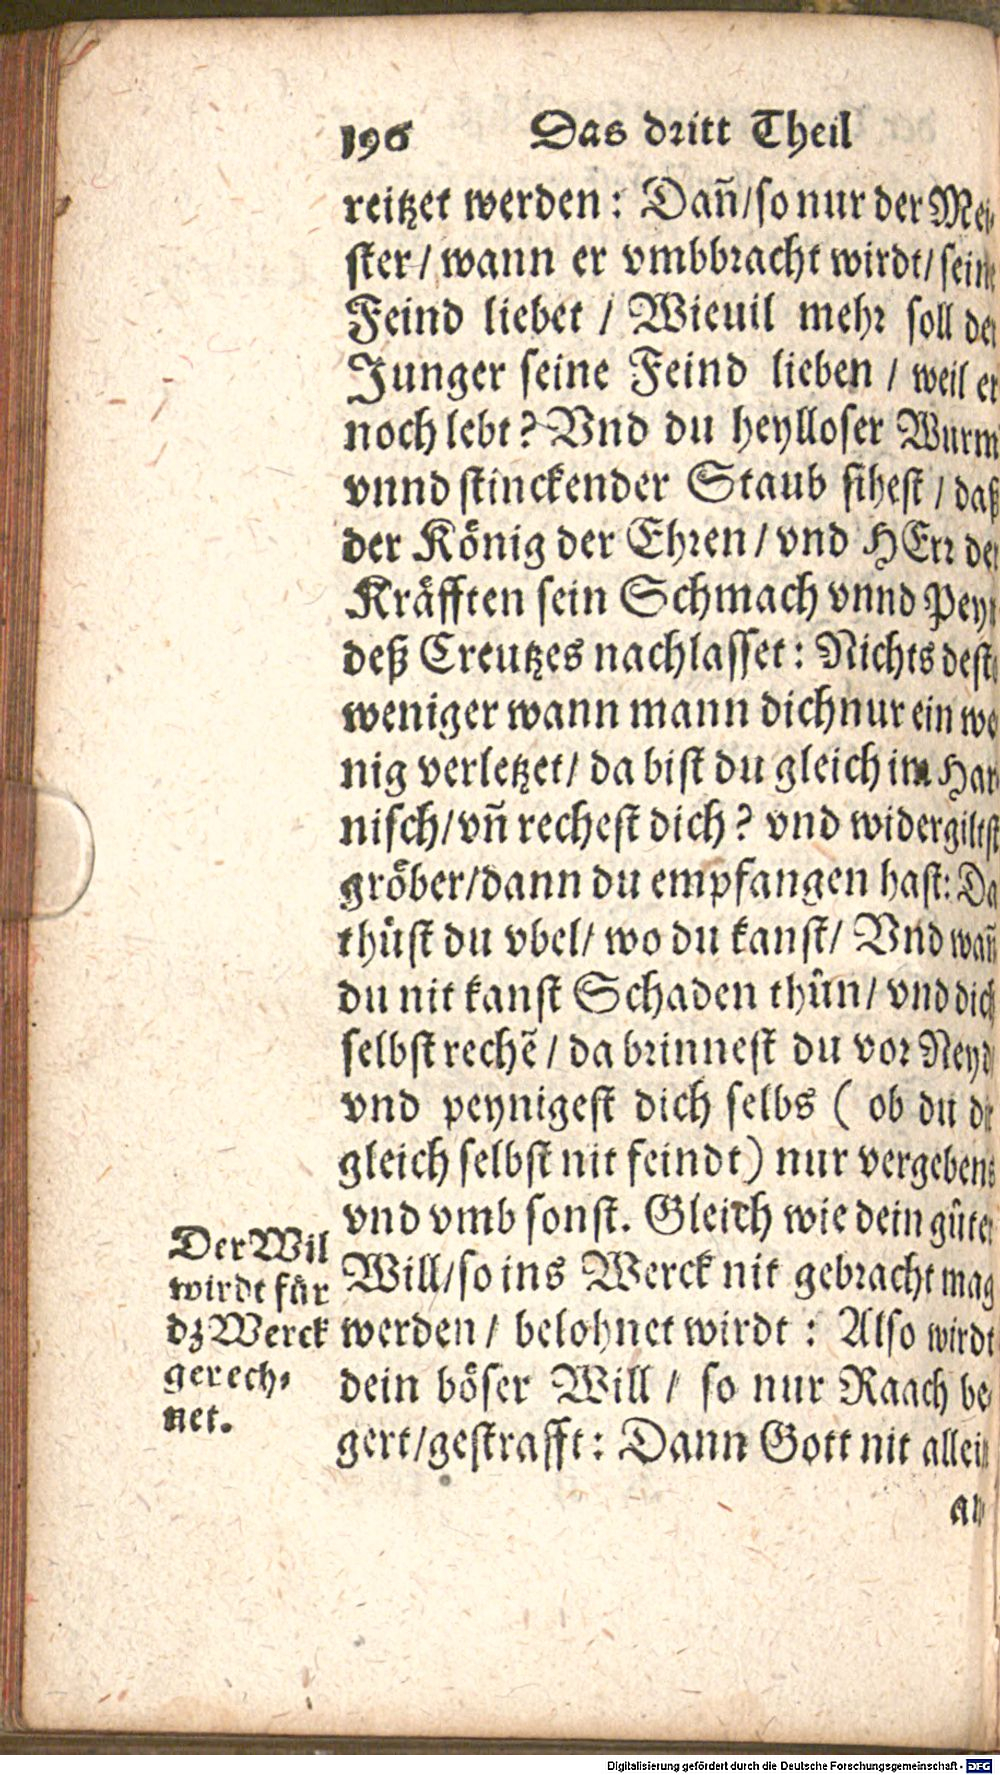 196 Das dritt Theil
reitzet werden: Dañ/so nur der Mei-
ster/ wann er vmbbracht wirdt/ seine
Feind liebet / Wieuil mehr soll der
Junger seine Feind lieben / weil er
noch lebt? Vnd du heylloser Wurm
vnnd stinckender Staub sihest / daß
der König der Ehren/ vnd HErr der
Kräfften sein Schmach vnnd Peyn
deß Creutzes nachlasset: Nichts desto
weniger wann mann dich nur ein we-
nig verletzet/ da bist du gleich im Har-
nisch/vñ rechest dich? vnd widergiltst
gröber/dann du empfangen hast: Da
thůst du vbel/ wo du kanst/ Vnd wañ
du nit kanst Schaden thůn/ vnd dich
selbst rechẽ / da brinnest du vor Neyd
vnd peynigest dich selbs ( ob du dir
gleich selbst nit feindt) nur vergebens
vnd vmb sonst. Gleich wie dein gůter
Will/so ins Werck nit gebracht mag
werden/ belohnet wirdt : Also wirdt
dein böser Will / so nur Raach be-
gert/gestrafft: Dann Gott nit allein
Der Wil
wirdt für
dz Werck
gerech-
net.